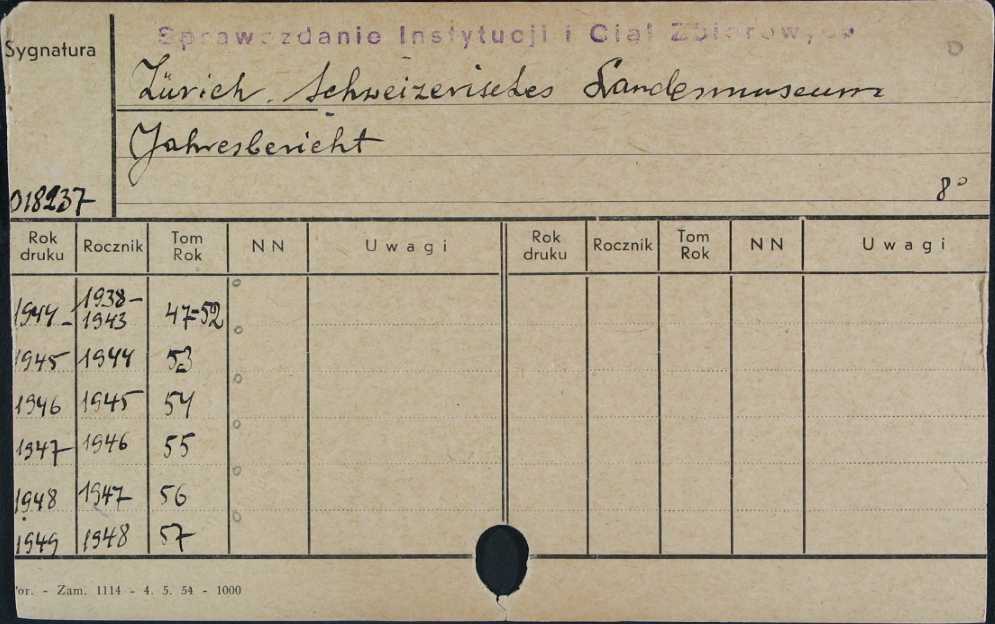 Sprawozdanie Instytucji i Ciał Zbiorowych
Sygnatura
Zürich. Schweizerisches Landesmuseum
Jahresbericht
018237
8°
Rok druku Rocznik Tom Rok NN Uwagi Rok druku Rocznik Tom Rok NN Uwagi
1944 1938-1943 47-52
1945 1944 53
1946 1945 54
1947 1946 55
1948 1947 56
1949 1948 57
or. - Zam. 1114 - 4. 5. 54 - 1000